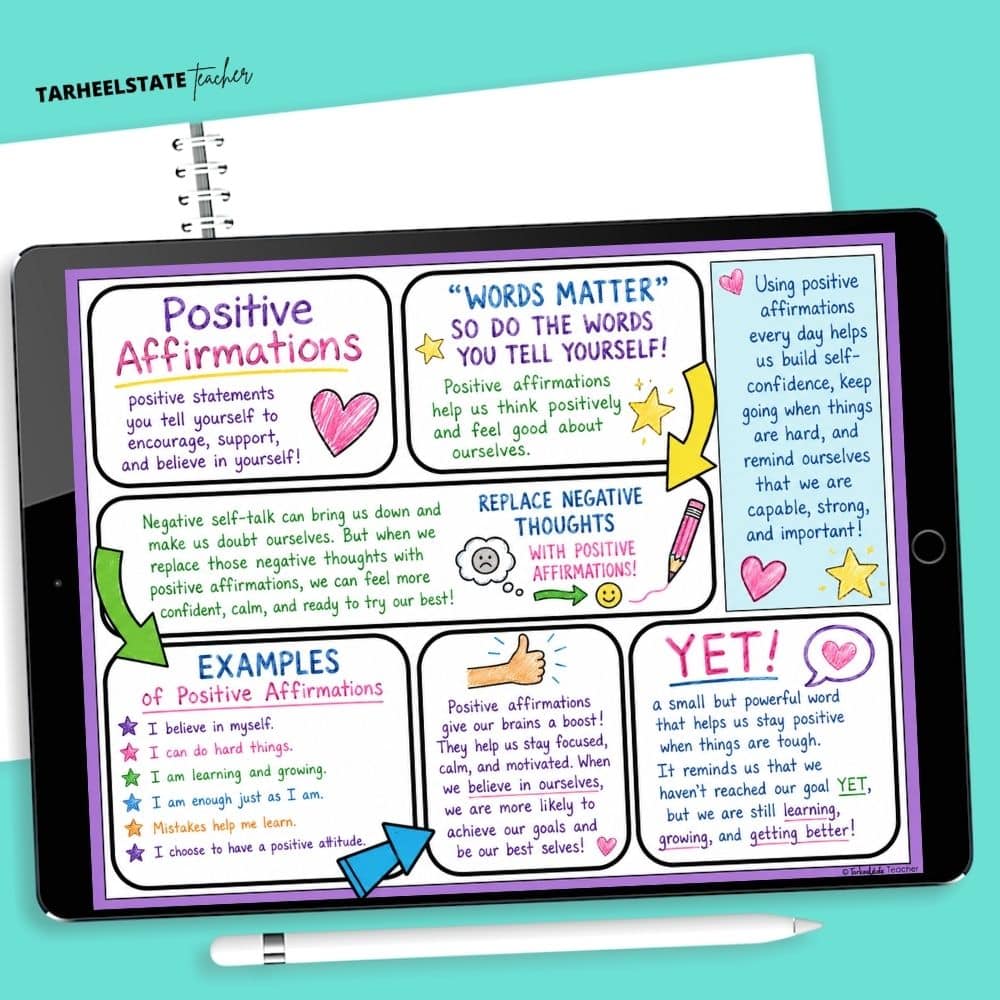 TARHEELSTATE teacher
Positive
Affirmations
positive statements
you tell yourself to
encourage, support,
and believe in yourself!
"WORDS MATTER"
SO DO THE WORDS
YOU TELL YOURSELF!
Positive affirmations
help us think positively
and feel good about
ourselves.
Using positive
affirmations
every day helps
us build self-
confidence, keep
going when things
are hard, and
remind ourselves
that we are
capable, strong,
and important!
Negative self-talk can bring us down and
make us doubt ourselves. But when we
replace those negative thoughts with
positive affirmations, we can feel more
confident, calm, and ready to try our best!
REPLACE NEGATIVE
THOUGHTS
WITH POSITIVE
AFFIRMATIONS!
EXAMPLES
of Positive Affirmations
I believe in myself.
I can do hard things.
I am learning and growing.
I am enough just as I am.
Mistakes help me learn.
I choose to have a positive attitude.
Positive affirmations
give our brains a boost!
They help us stay focused,
calm, and motivated. When
we believe in ourselves,
we are more likely to
achieve our goals and
be our best selves!
YET!
a small but powerful word
that helps us stay positive
when things are tough.
It reminds us that we
haven't reached our goal YET,
but we are still learning,
growing, and getting better!
© Teacher